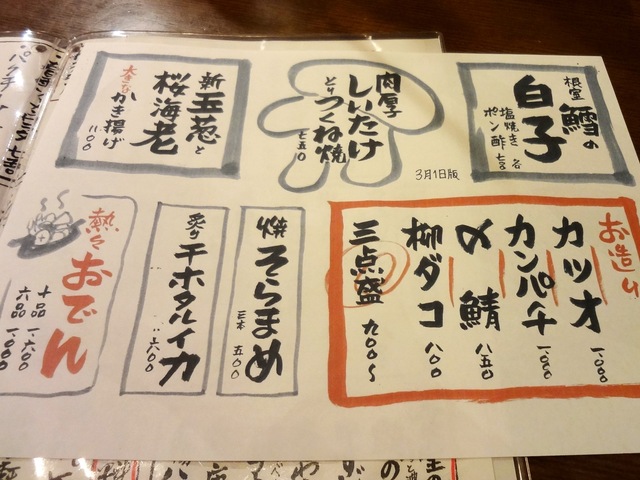 根室
鱈の
白子
塩焼き
ポン酢
各
七五〇
肉厚
しいたけ
とり
つくね焼
七五〇
3月1日版
新玉葱と
桜海老
大きな
かき揚げ
一一〇〇
お造り
カツオ
一、〇〇〇
カンパチ
一、〇〇〇
〆鯖
八五〇
柳ダコ
八〇〇
三点盛
九〇〇〜
焼そらまめ
三本
五〇〇
炙り
干ホタルイカ
六〇〇
熱々
おでん
十品
一、六〇〇
六品
一、〇〇〇
パクチー